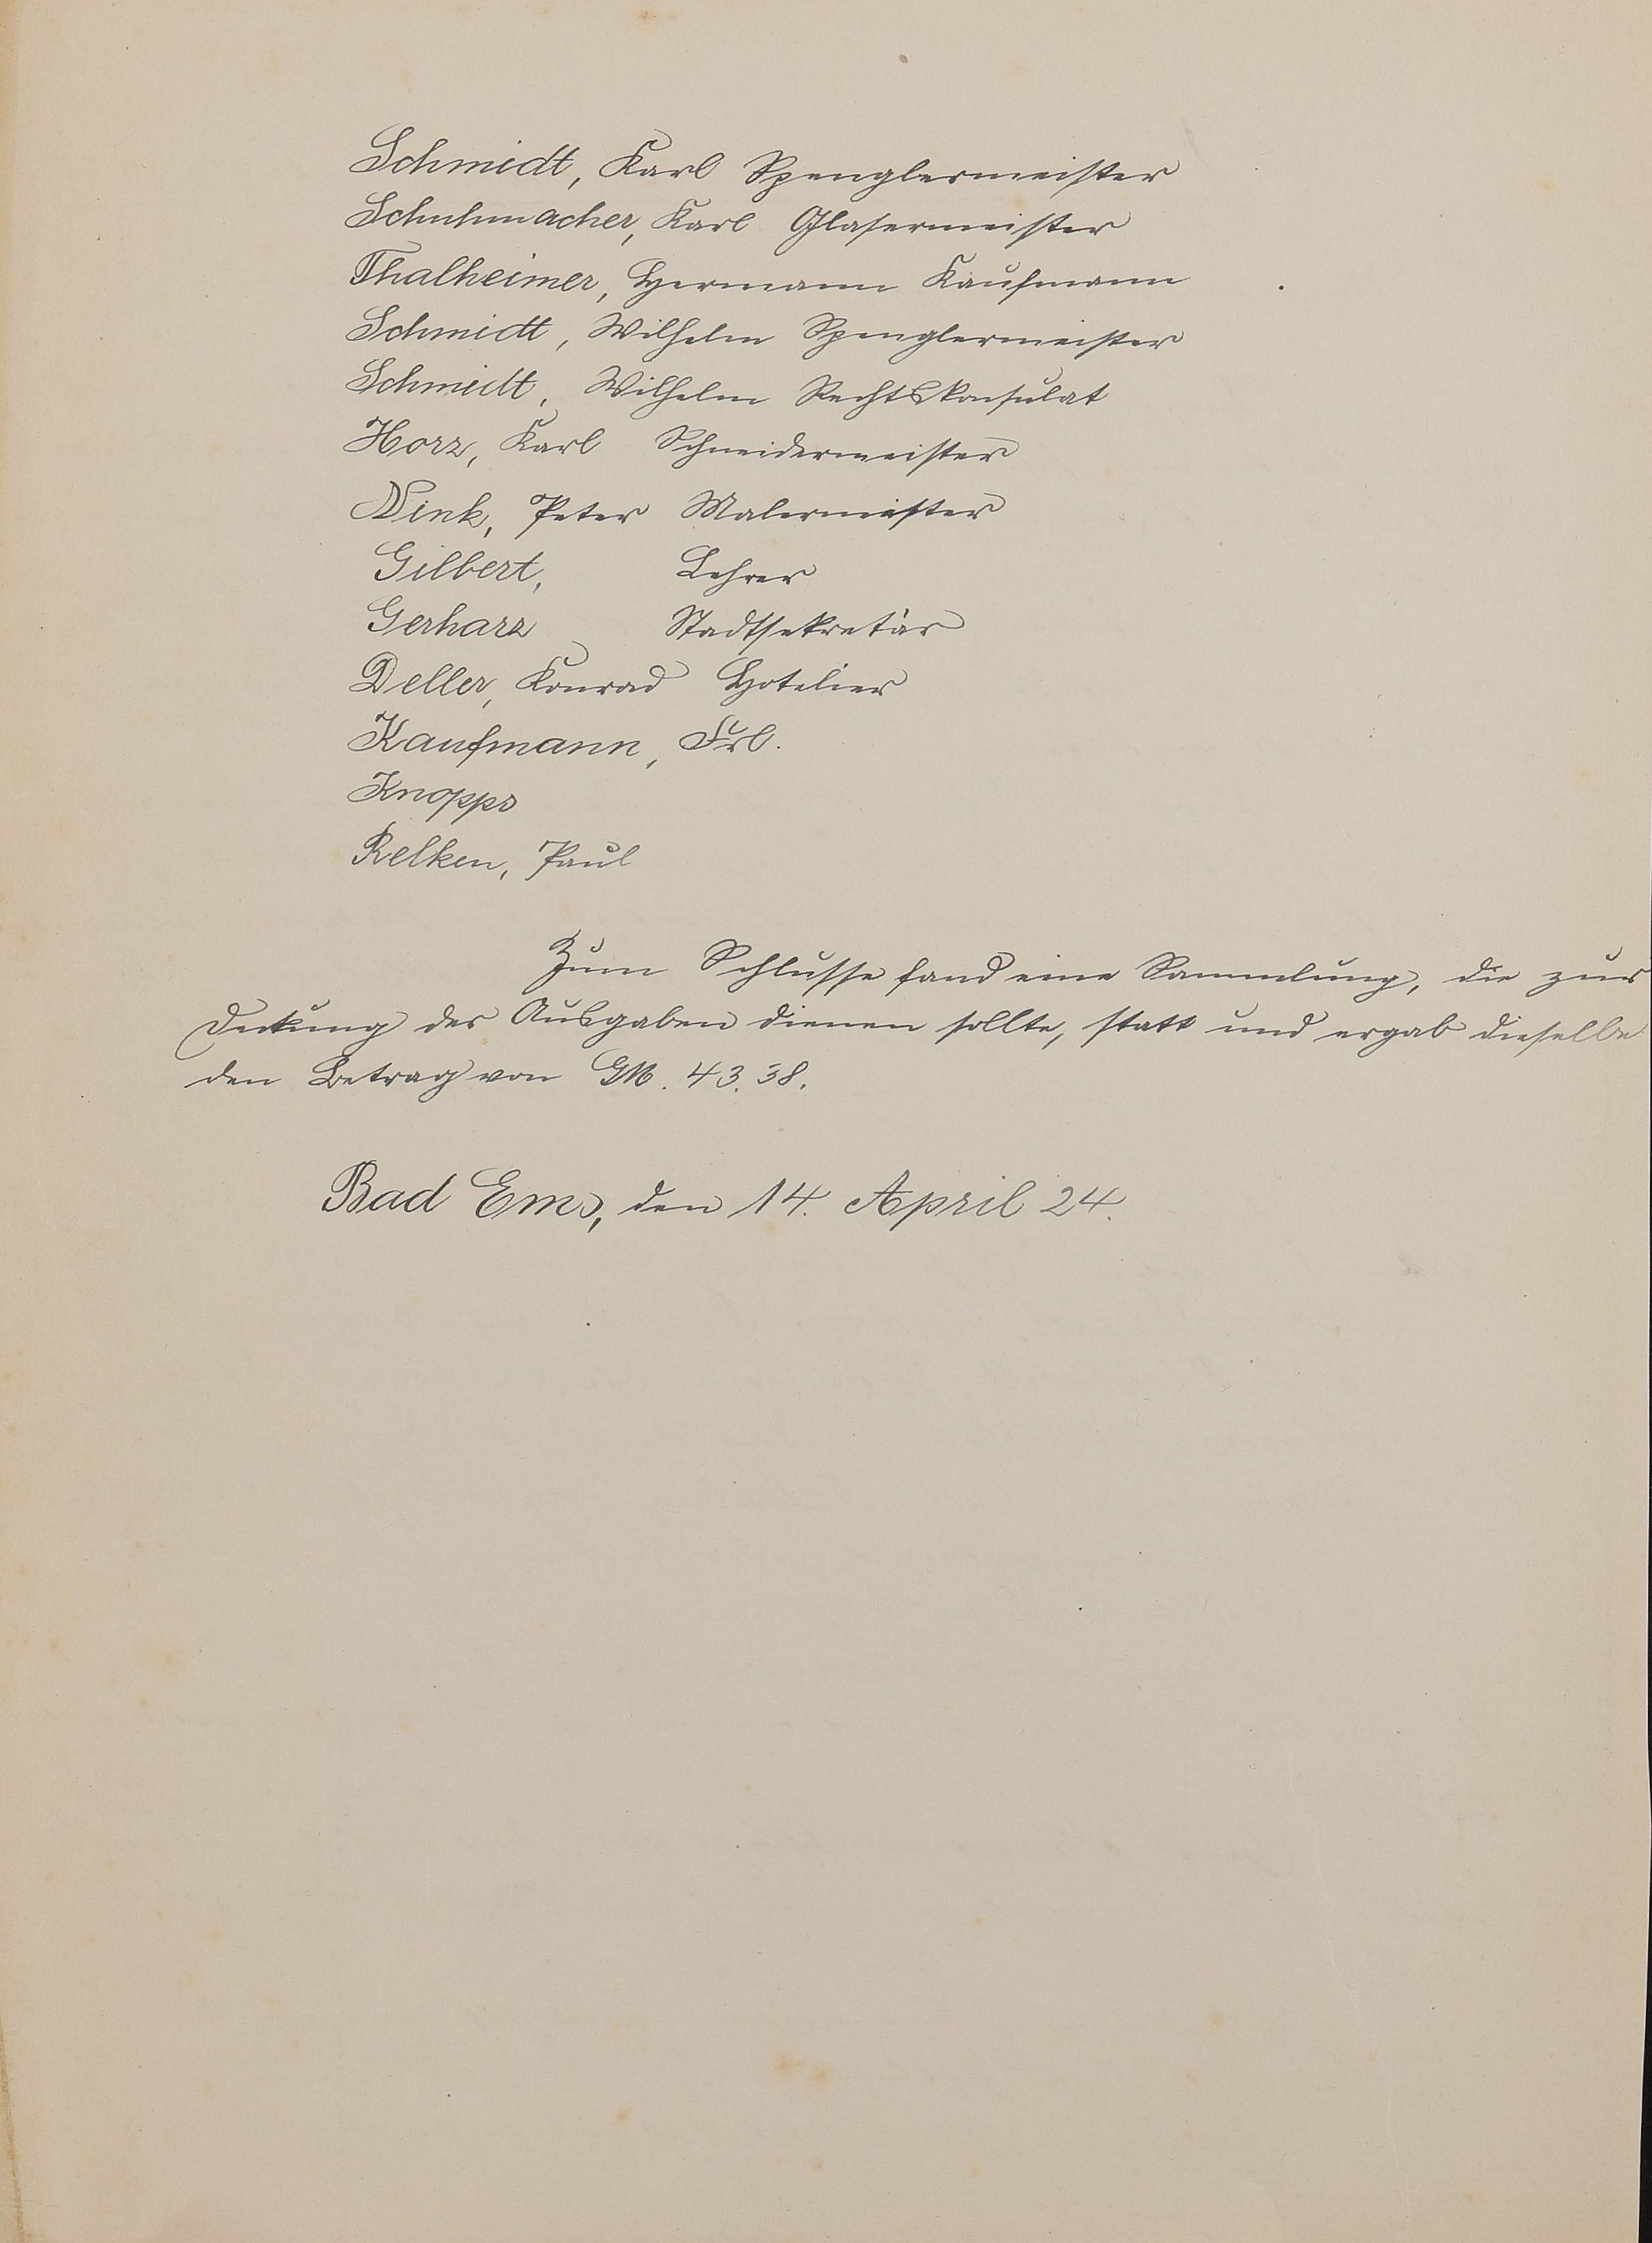 Schmidt, Karl Spenglermeister
Schuhmacher, Karl Glasermeister
Thalheimer, Hermann Kaufmann
Schmidt, Wilhelm Spenglermeister
Schmidt, Wilhelm Rechtskonsulat
Horz, Karl Schneidermeister
Nink, Peter Malermeister
Gilbert, Lehrer
Gerharz Stadtsekretär
Deller, Konrad Hotelier
Kaufmann, Frl.
Knopps
Relken, Paul
Zum Schlusse fand eine Sammlung, die zur
Deckung der Ausgaben dienen sollte, statt und ergab dieselbe
den Betrag von GM. 43.38.
Bad Ems, den 14. April 24.